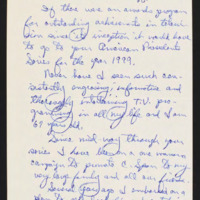 If there was an awards program
for outstanding achievements in television
since its inception it would have
to go to your American Presidents
Series for the year 1999.
Never have I seen such con-
sistently engrossing, informative and
thoroughly entertaining T.V. pro-
gramming in all my life, and I am
69 years old.
Since mid way through your
series I have been on a one man
campaign to promote C-Span to my
very large family and all our friends.
Several years ago I embarked on a